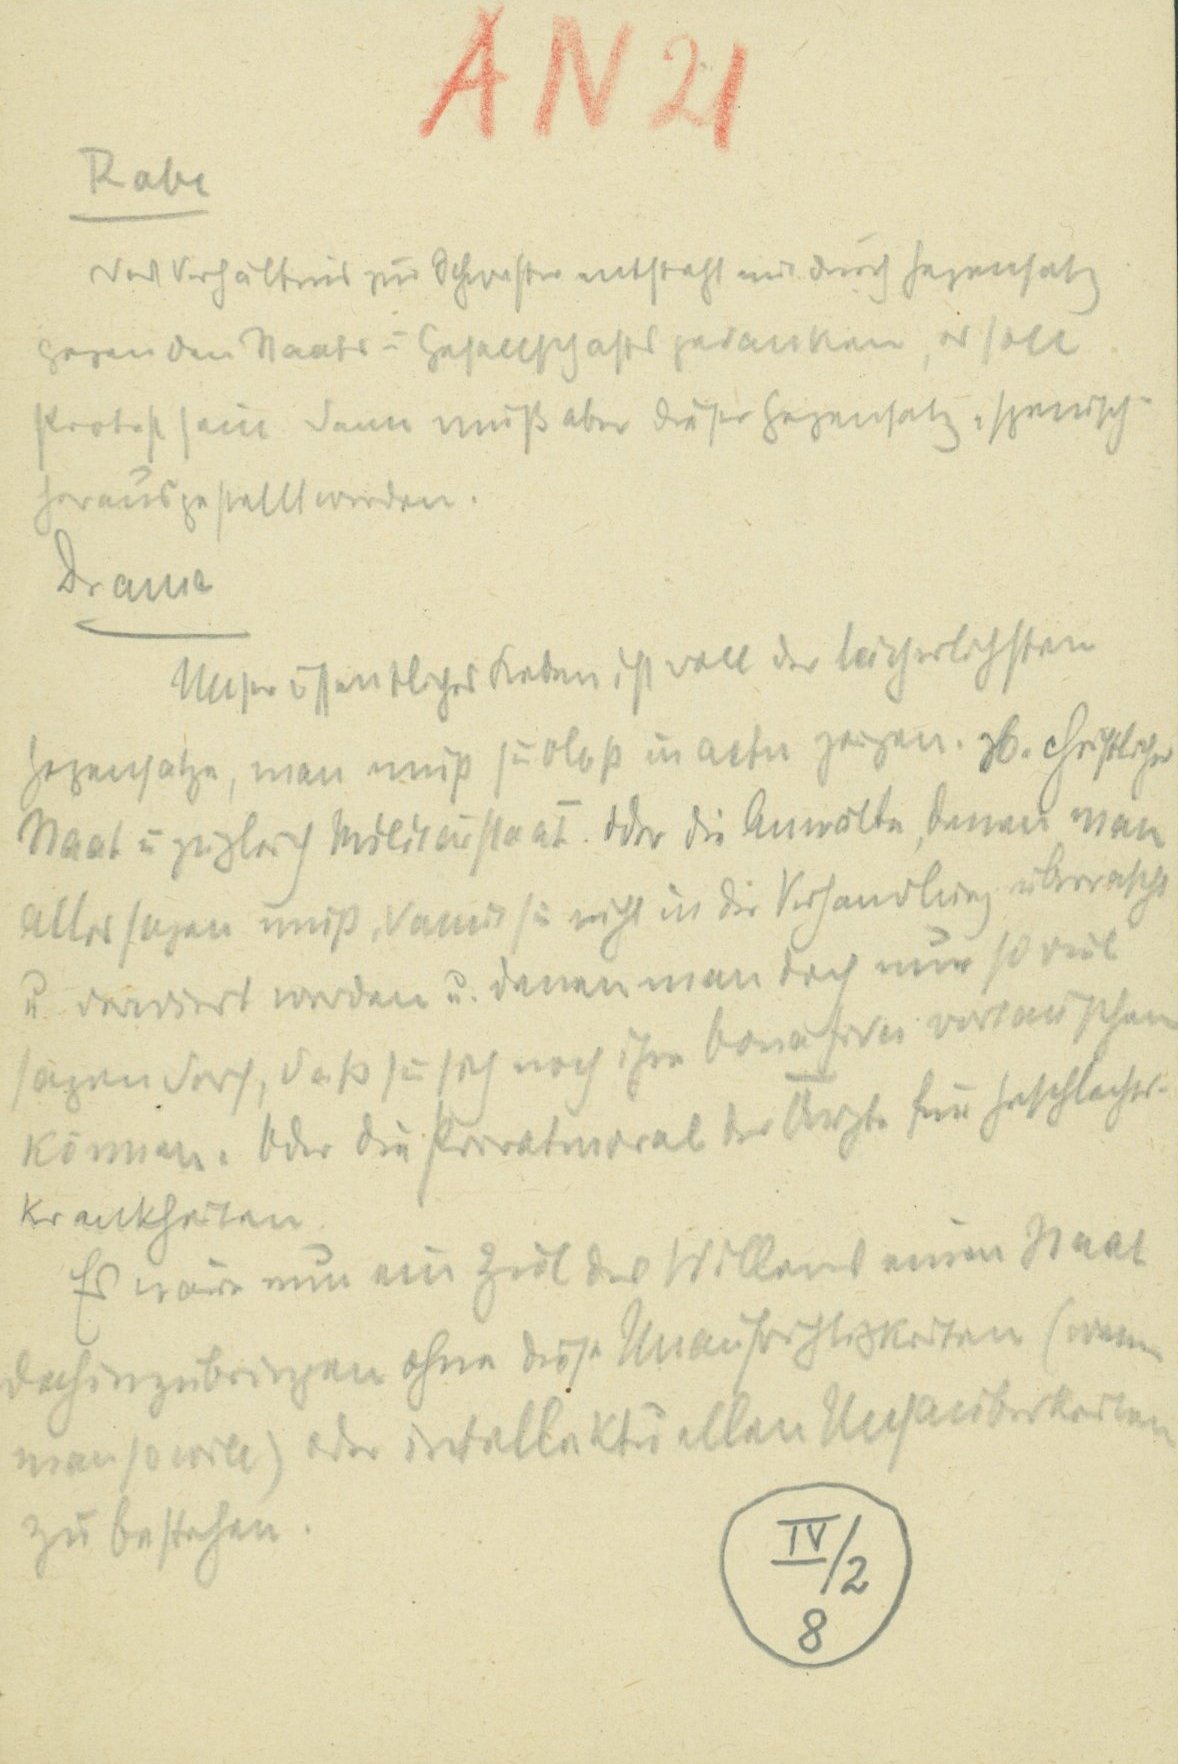 AN 21
Rabe
Das Verhältnis zur Schwester entsteht nur durch Gegensatz
gegen den Staats u Gesellschafts gedanken, es soll
Protest sein. Dann muß aber dieser Gegensatz „szenisch"
herausgestellt werden.
Drama
Unser öffentliches Leben ist voll der lächerlichsten
Gegensätze, man muß sie bloß in actu zeigen. zb. christlicher
Staat u zugleich Militärstaat. Oder die Anwälte, denen man
alles sagen muß, damit sie nicht in der Verhandlung überrascht
u werden u. denen man doch nur so viel
sagen darf, daß sie sich noch ihre bona fides vortäuschen
können. Oder die Privatmoral der Ärzte für Geschlechts-
krankheiten.
Es wäre nun ein Ziel des Willens einen Staat
dahinzubringen ohne diese Unaufrichtigkeiten (wenn
man so will) oder intellektuellen Unsauberkeiten
zu bestehen.
IV/2
8